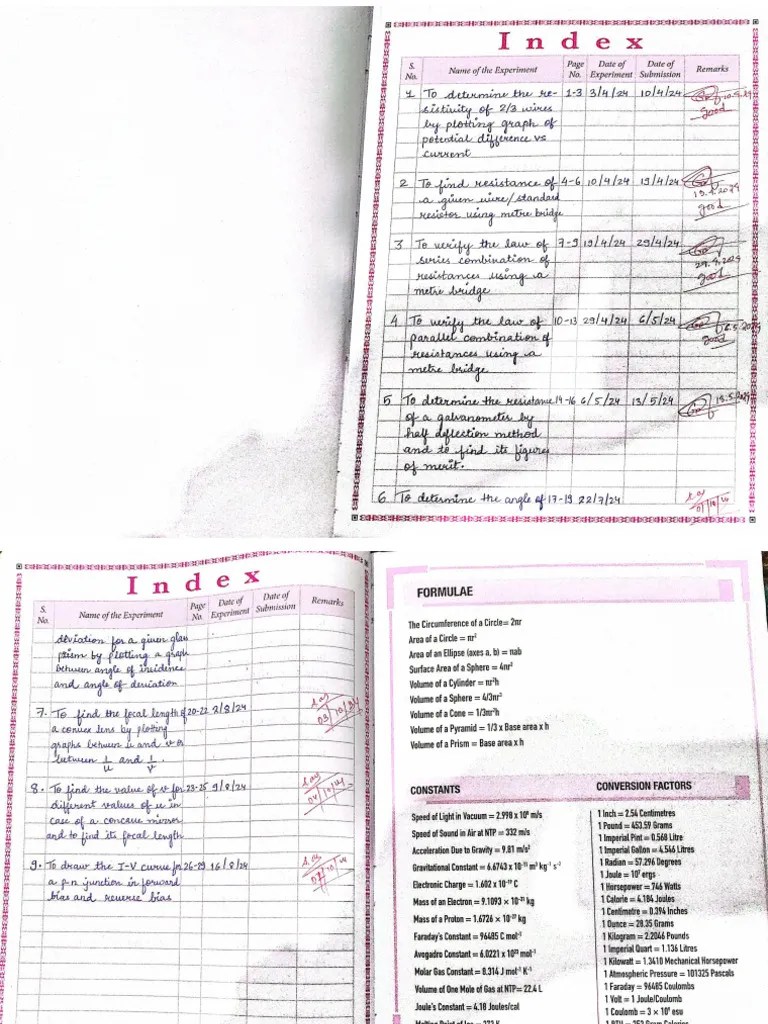 Index
S. No. Name of the Experiment Page No. Date of Experiment Date of Submission Remarks
1 To determine the re- 1-3 3/4/24 10/4/24
sistivity of 2/3 wires good
by plotting graph of
potential difference vs
current
2 To find resistance of 4-6 10/4/24 19/4/24
a given wire/standard 19.4.2024
resistor using metre bridge good
3 To verify the law of 7-9 19/4/24 29/4/24
series combination of 29.4.2024
resistances using a good
metre bridge
4 To verify the law of 10-13 29/4/24 6/5/24
parallel combination of good
resistances using a
metre bridge
5 To determine the resistance 14-16 6/5/24 13/5/24 13.5.2024
of a galvanometer by
half deflection method
and to find its figure
of merit.
6 To determine the angle of 17-19 22/7/24
Index
S. No. Name of the Experiment Page No. Date of Experiment Date of Submission Remarks
deviation for a given glass
prism by plotting a graph
between angle of incidence
and angle of deviation
7. To find the focal length of 20-22 2/8/24
a convex lens by plotting
graphs between u and v or
between 1/u and 1/v.
8. To find the value of v for 23-25 9/8/24
different values of u in
case of a concave mirror
and to find its focal length
9. To draw the I-V curve for 26-29 16/8/24
a p-n junction in forward
bias and reverse bias
FORMULAE
The Circumference of a Circle= 2πr
Area of a Circle = πr²
Area of an Ellipse (axes a, b) = πab
Surface Area of a Sphere = 4πr²
Volume of a Cylinder = πr²h
Volume of a Sphere = 4/3πr³
Volume of a Cone = 1/3πr²h
Volume of a Pyramid = 1/3 x Base area x h
Volume of a Prism = Base area x h
CONSTANTS
Speed of Light in Vacuum = 2.998 x 10⁸ m/s
Speed of Sound in Air at NTP = 332 m/s
Acceleration Due to Gravity = 9.81 m/s²
Gravitational Constant = 6.6743 x 10⁻¹¹ m³ kg⁻¹ s⁻²
Electronic Charge = 1.602 x 10⁻¹⁹ C
Mass of an Electron = 9.1093 × 10⁻³¹ kg
Mass of a Proton = 1.6726 × 10⁻²⁷ kg
Faraday's Constant = 96485 C mol⁻¹
Avogadro Constant = 6.0221 x 10²³ mol⁻¹
Molar Gas Constant = 8.314 J mol⁻¹ K⁻¹
Volume of One Mole of Gas at NTP= 22.4 L
Joule's Constant = 4.18 Joules/cal
CONVERSION FACTORS
1 Inch = 2.54 Centimetres
1 Pound = 453.59 Grams
1 Imperial Pint = 0.568 Litre
1 Imperial Gallon = 4.546 Litres
1 Radian = 57.296 Degrees
1 Joule = 10⁷ ergs
1 Horsepower = 746 Watts
1 Calorie = 4.184 Joules
1 Centimetre = 0.394 Inches
1 Ounce = 28.35 Grams
1 Kilogram = 2.2046 Pounds
1 Imperial Quart = 1.136 Litres
1 Kilowatt = 1.3410 Mechanical Horsepower
1 Atmospheric Pressure = 101325 Pascals
1 Faraday = 96485 Coulombs
1 Volt = 1 Joule/Coulomb
1 Coulomb = 3 × 10⁹ esu